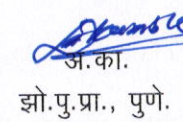 अ.का.
झो.पु.प्रा., पुणे.